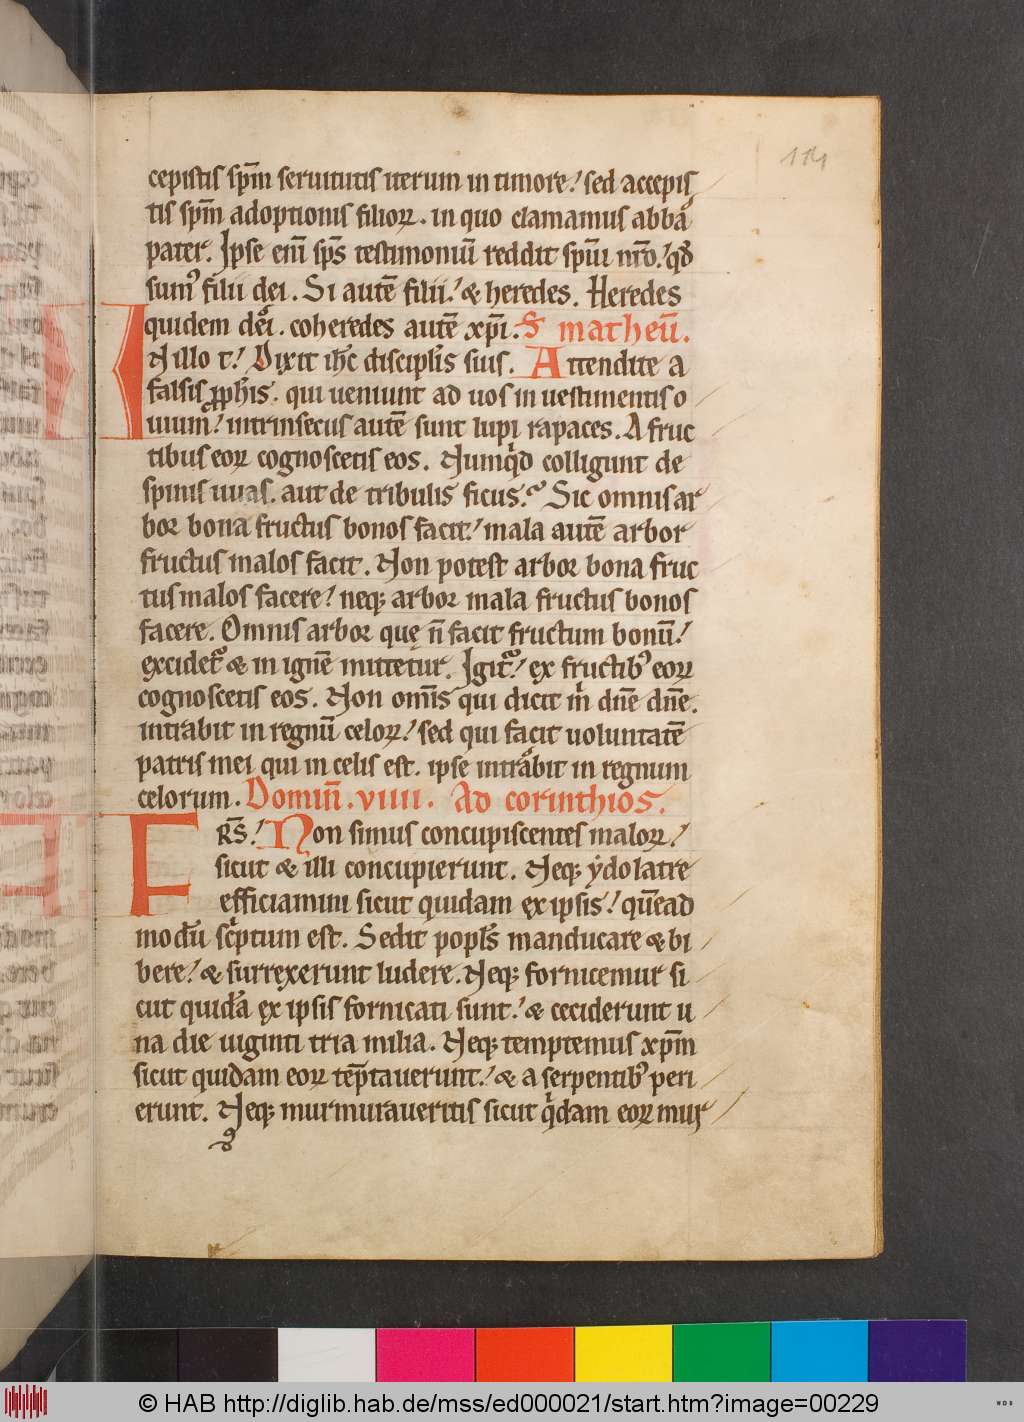 114
cepistis sp̄m seruitutis iterum in timore! sed accepis
tis sp̄m adoptionis filioꝝ. in quo clamamus abba
pater. Ipse eni̅ sp̄s testimoniu̅ reddit sp̄ui nr̄o! qd̓
sumꝰ filii dei. Si aute̅ filii! & heredes. Heredes
quidem dei. coheredes aute̅ xp̄i. S̄ matheu̅.
IN illo t! Dixit ih̅c discipl̅s suis. Attendite a
falsis ꝓph̅is. qui ueniunt ad uos in uestimentis o
uium! intrinsecus aute̅ sunt lupi rapaces. A fruc
tibus eoꝝ cognoscetis eos. Numqͥd colligunt de
spinis uuas. aut de tribulis ficus? Sic omnis ar
bor bona fructus bonos facit! mala aute̅ arbor
fructus malos facit. Non potest arbor bona fruc
tus malos facere! neqꝫ arbor mala fructus bonos
facere. Omnis arbor quę n̅ facit fructum bonu̅!
excidet᷑ & in igne̅ mittetur. Igit᷑! ex fructibꝰ eoꝝ
cognoscetis eos. Non om̅is qui dicit mͥ dn̅e dn̅e.
intrabit in regnu̅ celoꝝ! sed qui facit uoluntate̅
patris mei qui in celis est. ipse intrabit in regnum
celorum. Domin̅. viiii. Ad corinthios.
FRS̅! Non simus concupiscentes maloꝝ!
sicut & illi concupierunt. Neqꝫ ẏdolatre
efficiamini sicut quidam ex ipsis! que̅ad
modu̅ scͥptum est. Sedit popl̅s manducare & bi
bere! & surrexerunt ludere. Neqꝫ fornicemur si
cut quida̅ ex ipsis fornicati sunt! & ceciderunt u
na die uiginti tria milia. Neqꝫ temptemus xp̄m
sicut quidam eoꝝ te̅ptauerunt! & a serpentibꝰ peri
erunt. Neqꝫ murmuraueritis sicut qͥdam eoꝝ mur
© HAB http://diglib.hab.de/mss/ed000021/start.htm?image=00229